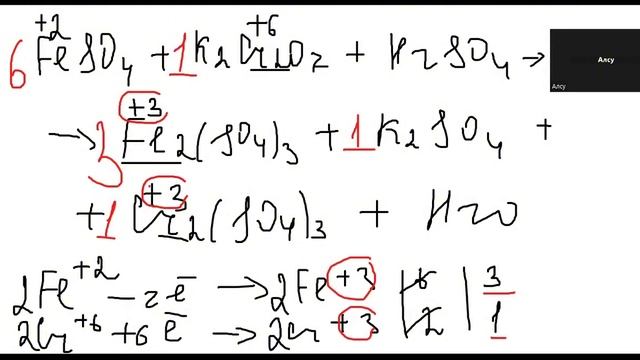 +2 +6
6FeSO4 + 1K2Cr2O7 + H2SO4 →
Алсу
Алсу
+3
→ 3Fe2(SO4)3 + 1K2SO4 +
+3
+ 1Cr2(SO4)3 + H2O
2Fe+2 – 2ē → 2Fe+3 | 6 | 3
2Cr+6 + 6ē → 2Cr+3 | 2 | 1